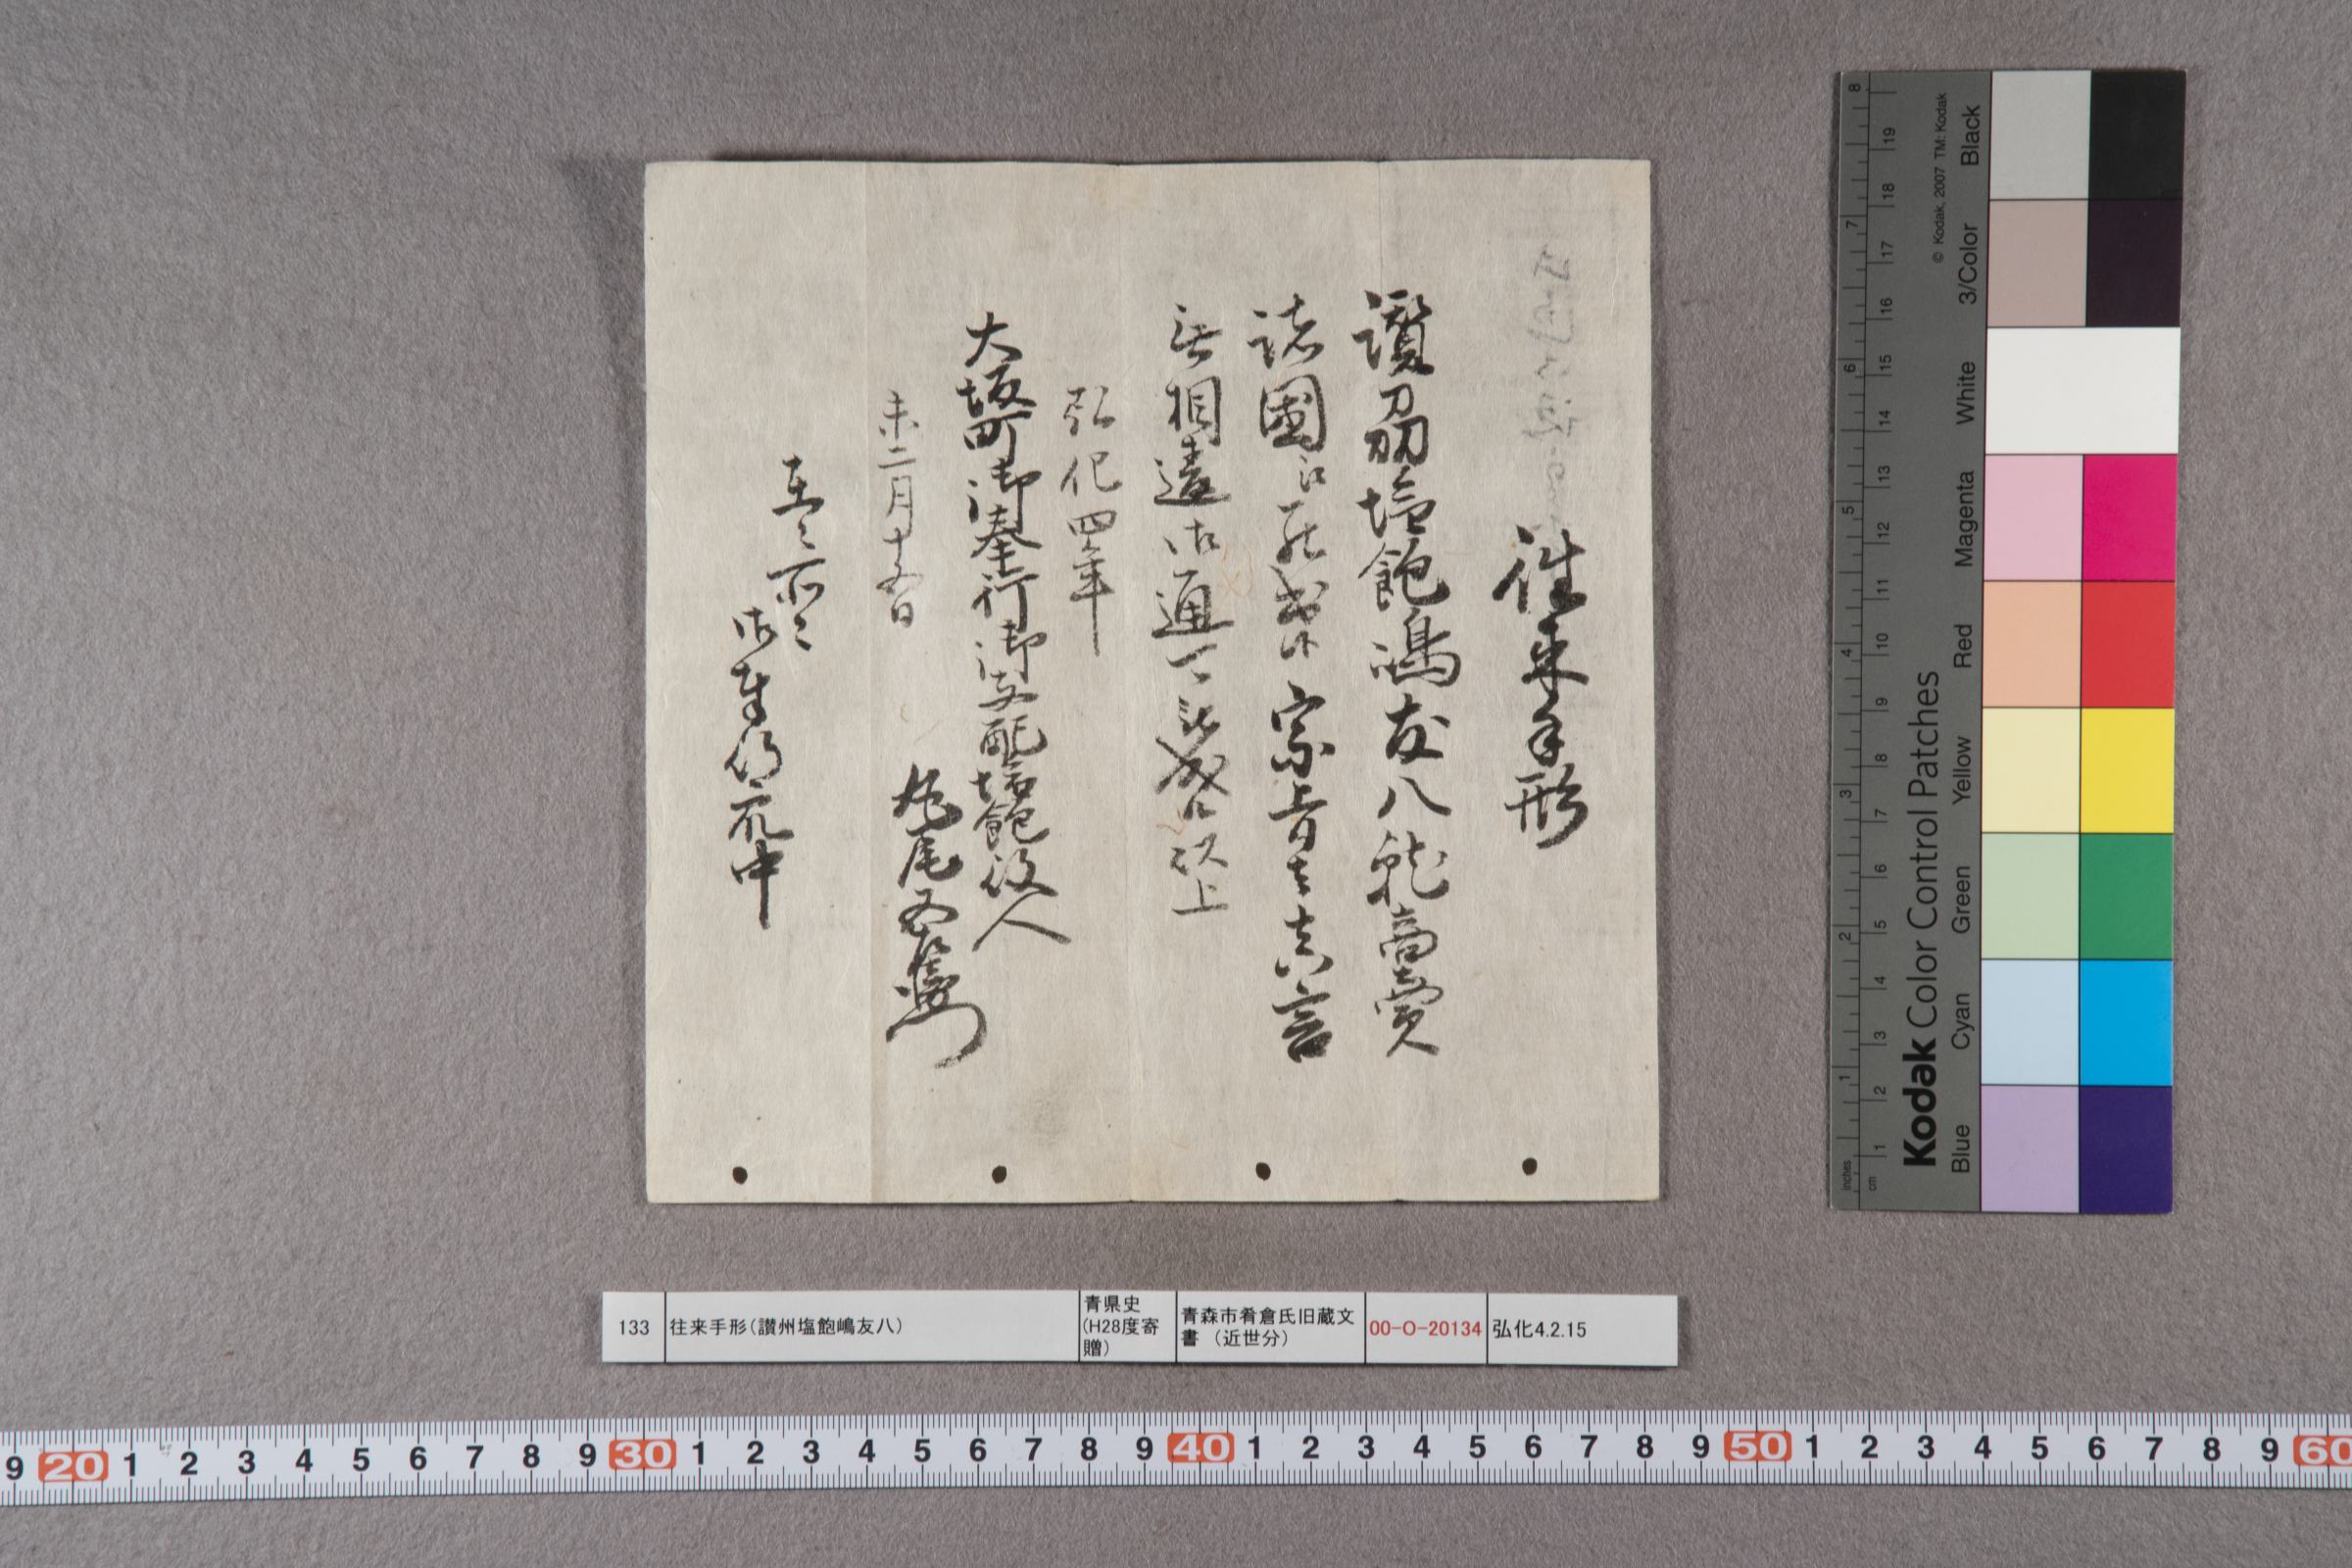 往来手形
讃刕塩飽嶋友八就商賣
諸國江罷越候宗旨者真言
無相違御通可被成候以上
弘化四年
大坂町御奉行御支配塩飽役人
未二月十五日
丸尾五左衛門
在々所々
中
133
往来手形(讃州塩飽嶋友八)
青県史
(H28度寄
贈)
青森市肴倉氏旧蔵文
書 (近世分)
00-O-20134
弘化4.2.15
Kodak Color Control Patches
© Kodak, 2007 TM: Kodak
Blue Cyan Green Yellow Red Magenta White 3/Color Black
inches 1 2 3 4 5 6 7 8
cm 1 2 3 4 5 6 7 8 9 10 11 12 13 14 15 16 17 18 19
9 20 1 2 3 4 5 6 7 8 9 30 1 2 3 4 5 6 7 8 9 40 1 2 3 4 5 6 7 8 9 50 1 2 3 4 5 6 7 8 9 60